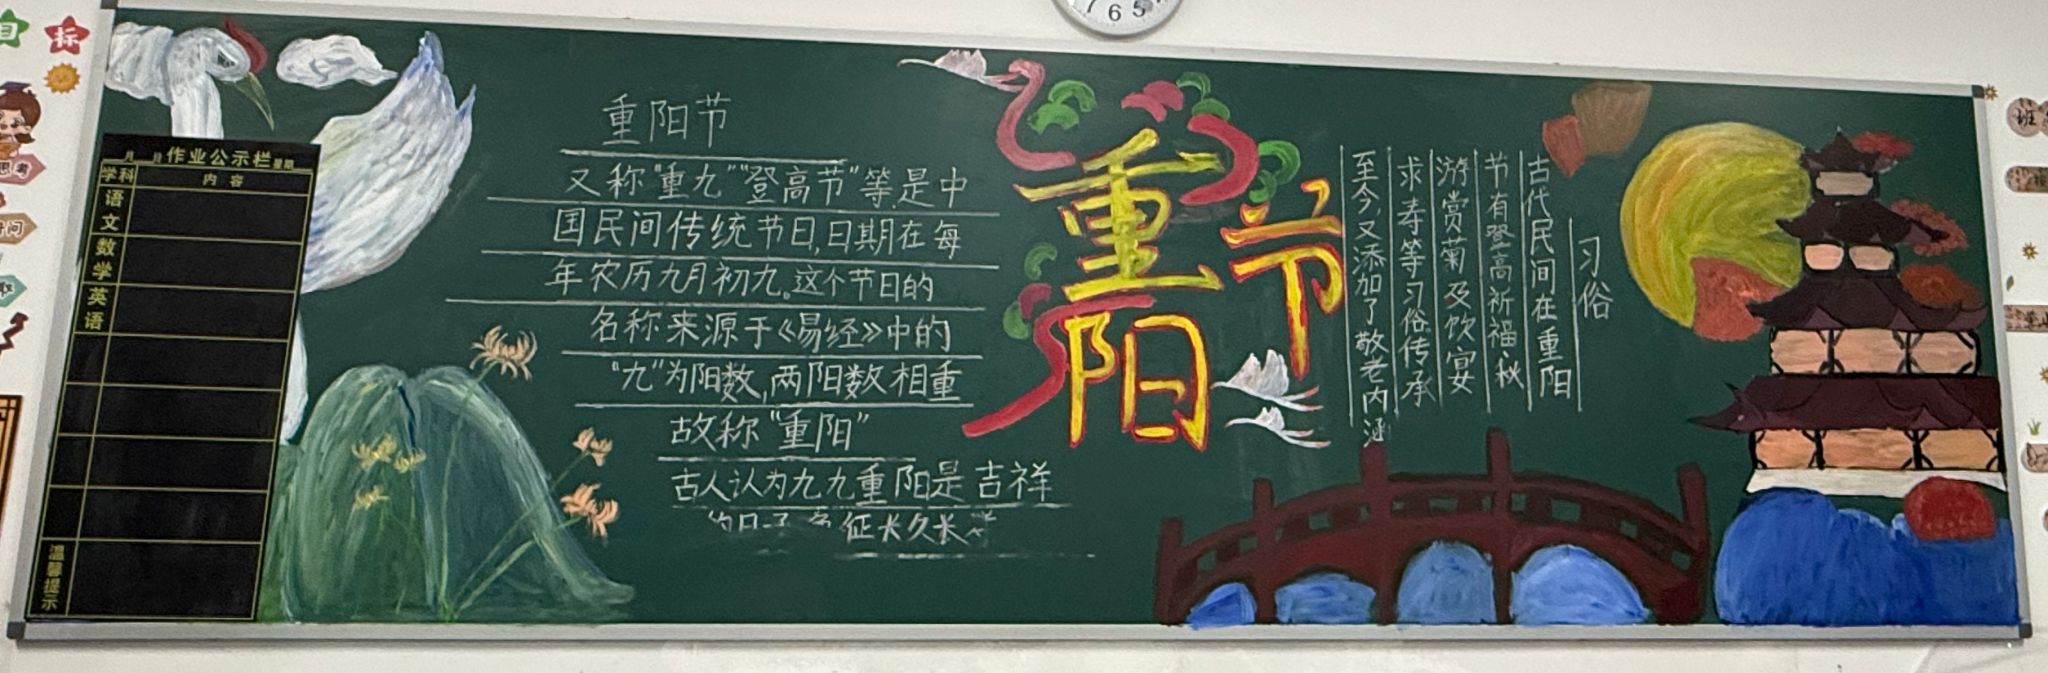 目标
思考
月 日 作业公示栏 星期
学科 内容
语文
数学
英语
温馨提示
重阳节
又称"重九""登高节"等,是中
国民间传统节日,日期在每
年农历九月初九。这个节日的
名称来源于《易经》中的
"九"为阳数,两阳数相重
故称"重阳"
古人认为九九重阳是吉祥
征长久长
重阳节
习俗
古代民间在重阳
节有登高祈福、秋
游赏菊及饮宴
求寿等习俗传承
至今,又添加了敬老内涵
班
7 6 5